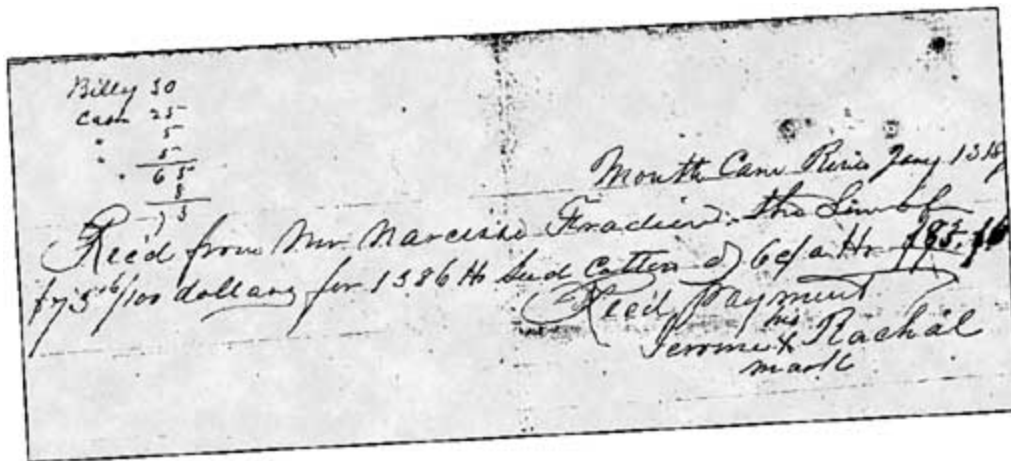 Billy 30
Cash 25
" 5
" 5
65
8
73
Mouth Cane River Jany 13
Rec'd from Mr. Narcisse Fradieu the Sum of
$73 16/100 dollars for 1386 lbs Seed Cotton @ 6¢ a lb
Rec'd payment
his
Jerome X Rachal
mark